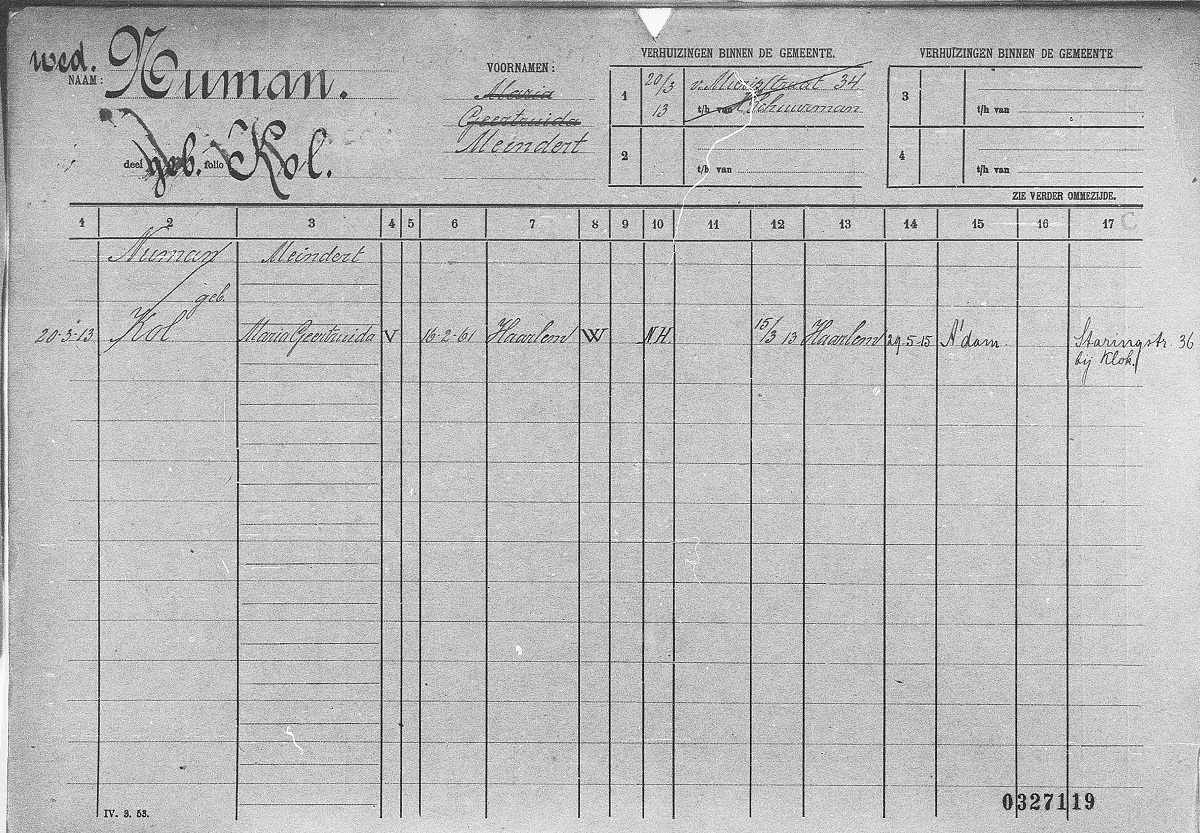 wed.
NAAM: Numan.
deel geb. folio Kol.
VOORNAMEN:
Maria
Geertruida
Meindert
VERHUIZINGEN BINNEN DE GEMEENTE.
1 20/3 13 v. Mierisstraat 34
t/h van Schuurman
2
t/h van
VERHUIZINGEN BINNEN DE GEMEENTE
3
t/h van
4
t/h van
ZIE VERDER OMMEZIJDE.
1 2 3 4 5 6 7 8 9 10 11 12 13 14 15 16 17 C
Numan Meindert
geb.
20-3-13 Kol Maria Geertruida V 16-2-61 Haarlem W NH. 15/3 13 Haarlem 29.5-15 A'dam. Staringstr. 36
bij Klok.
IV. 3. 53.
0327119